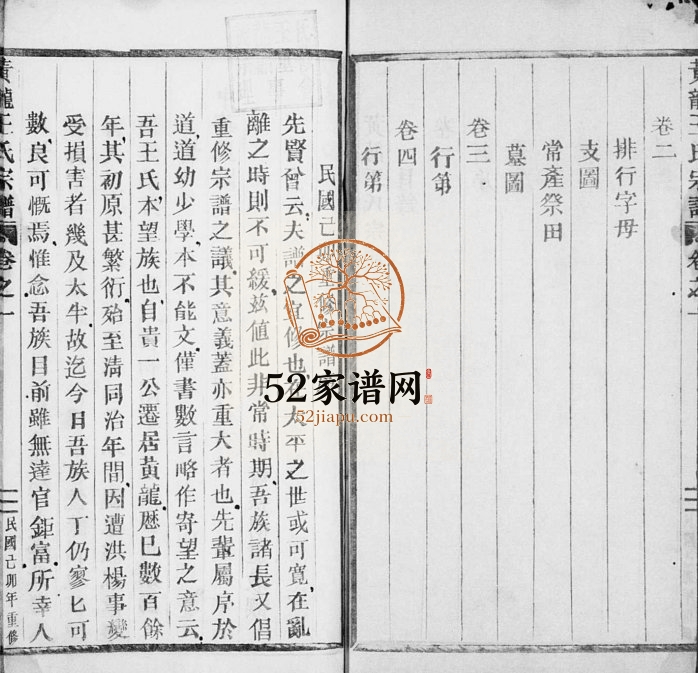 黃龍王氏宗譜
卷二
排行字母
支圖
常產祭田
墓圖
卷三
行第
卷四
行第
民國己卯重修宗譜
先賢曾云夫譜之宜修也 太平之世或可寬在亂
離之時則不可緩茲值此非常時期吾族諸長又倡
重修宗譜之議其意義蓋亦重大者也先輩屬序於
道道幼少學本不能文僅書數言略作寄望之意云
吾王氏本望族也自貴一公遷居黃龍歷已數百餘
年其初原甚繁衍殆至清同治年間因遭洪楊事變
受損害者幾及太半故迄今日吾族人丁仍寥匕可
數良可慨焉惟念吾族目前雖無達官鉅富所幸人
黃龍王氏宗譜 卷之一 民國己卯年重修
52家谱网
52jiapu.com